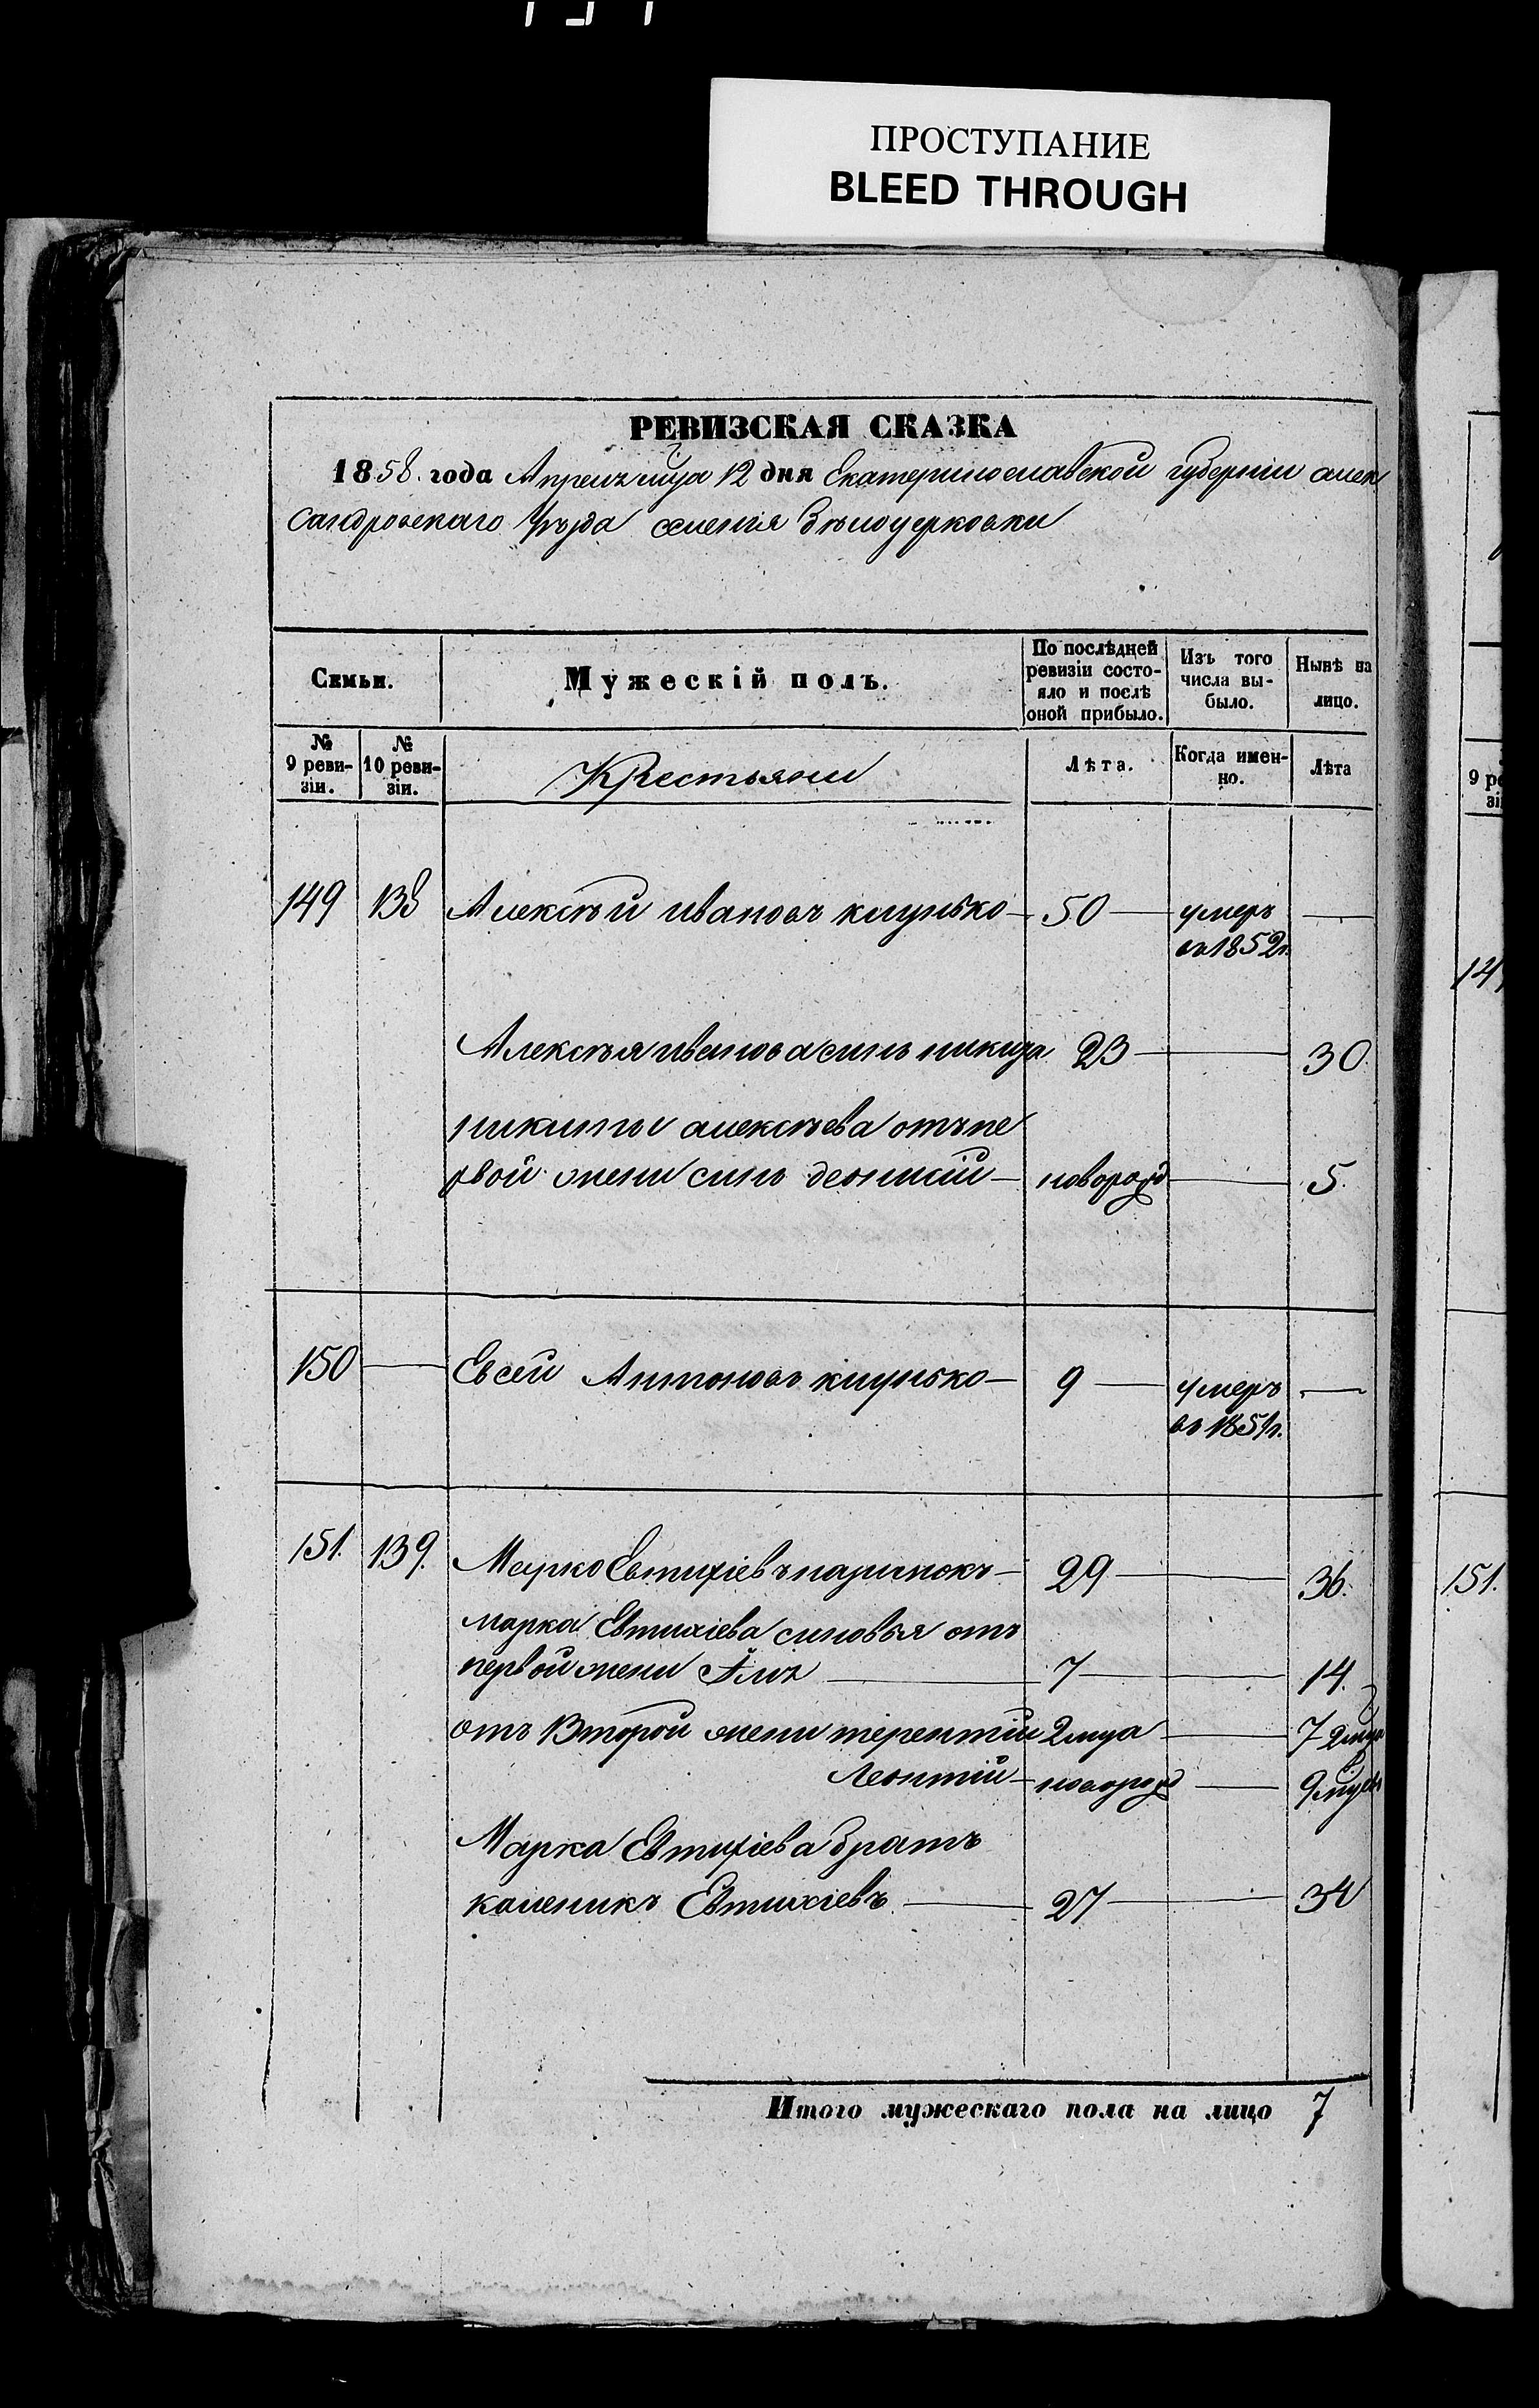 ПРОСТУПАНИЕ
BLEED THROUGH
РЕВИЗСКАЯ СКАЗКА
1858. года Апреля мца 12 дня Екатеринославской губернии алек
сандровскаго уѣзда селения Бѣлоцерковки
Семьи.
Мужескій полъ.
По послѣдней ревизіи состо-
яло и послѣ оной прибыло.
Изъ того числа вы-
было.
Нынѣ на лицо.
№ 9 реви-
зіи.
№ 10 реви-
зіи.
Крестьяни
Лѣта.
Когда имен-
но.
Лѣта
149 138 Алексѣй ивановъ клунько 50 умеръ
въ 1852г.
Алексѣя иванова синъ никита 23 30.
никиты алексѣева отъ пе
рвой жени синъ леонтій новорожд 5.
150 Евсей Антоновъ клунько 9 умеръ
въ 1851г.
151. 139. Марко Евтихіевъ 29 36.
марка Евтихіева синовья отъ
первой жени 7 14.
отъ Второй жени терентій 2 мца 7 2 мца
Леонтій новорожд 9 мцев
Марка Евтихіева братъ
каленикъ Евтихіевъ 27 34
Итого мужескаго пола на лицо 7
9 ре
зі
151.